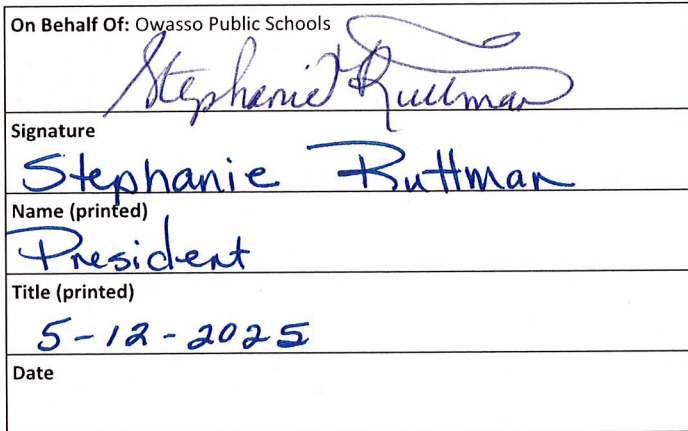 On Behalf Of: Owasso Public Schools
Stephanie Ruttman
Signature
Stephanie Ruttman
Name (printed)
President
Title (printed)
5-12-2025
Date